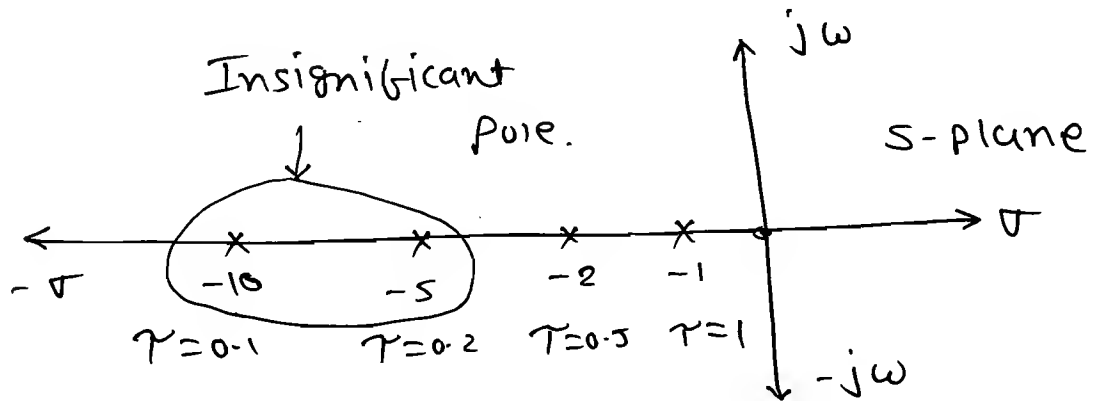 jω
Insignificant
Pole.
S-plane
σ
-σ
-10
-5
-2
-1
τ=0.1
τ=0.2
τ=0.5
τ=1
-jω